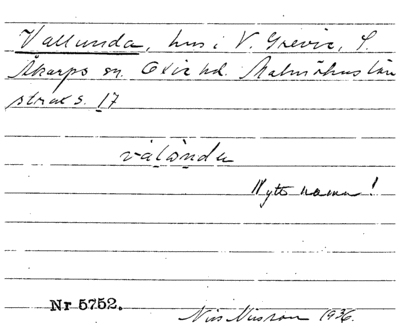 Vallunda, hus i V. Grevie, S.
Åkarps sn. Oxie hd. Malmöhus län
strax s. 17
valùnda
Nytt namn!
Nr 5752.
Nils Nilsson 1936.